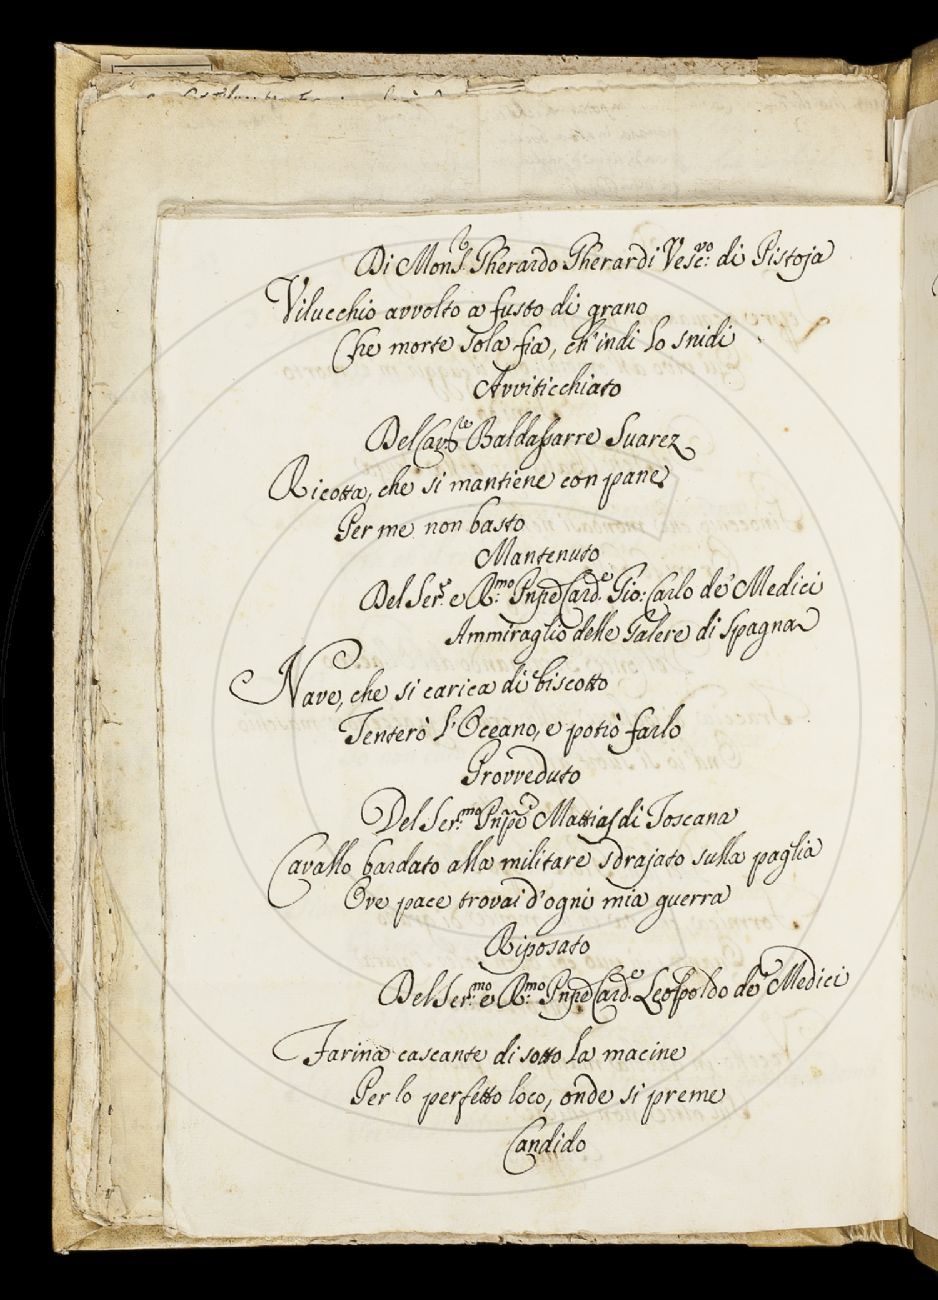 Di Mons.r Gherardo Gherardi Vesc.vo di Pistoja
Vilucchio avvolto a fusto di grano
Che morte sola fia, ch'indi lo snidi
Avviticchiato
Del Cav.re Baldassarre Suarez
Ricotta, che si mantiene con pane
Per me non basto
Mantenuto
Del Ser.e R.mo Pnpe Card.e Gio: Carlo de' Medici
Ammiraglio delle Galere di Spagna
Nave, che si carica di biscotto
Tenterò l'Oceano, e potrò farlo
Provveduto
Del Ser.mo Pnpe Mattias di Toscana
Cavallo bardato alla militare sdrajato sulla paglia
Ove pace trovai d'ogni mia guerra
Riposato
Del Ser.mo e R.mo Pnpe Card.e Leopoldo de' Medici
Farina cascante di sotto la macine
Per lo perfetto loco, onde si preme
Candido